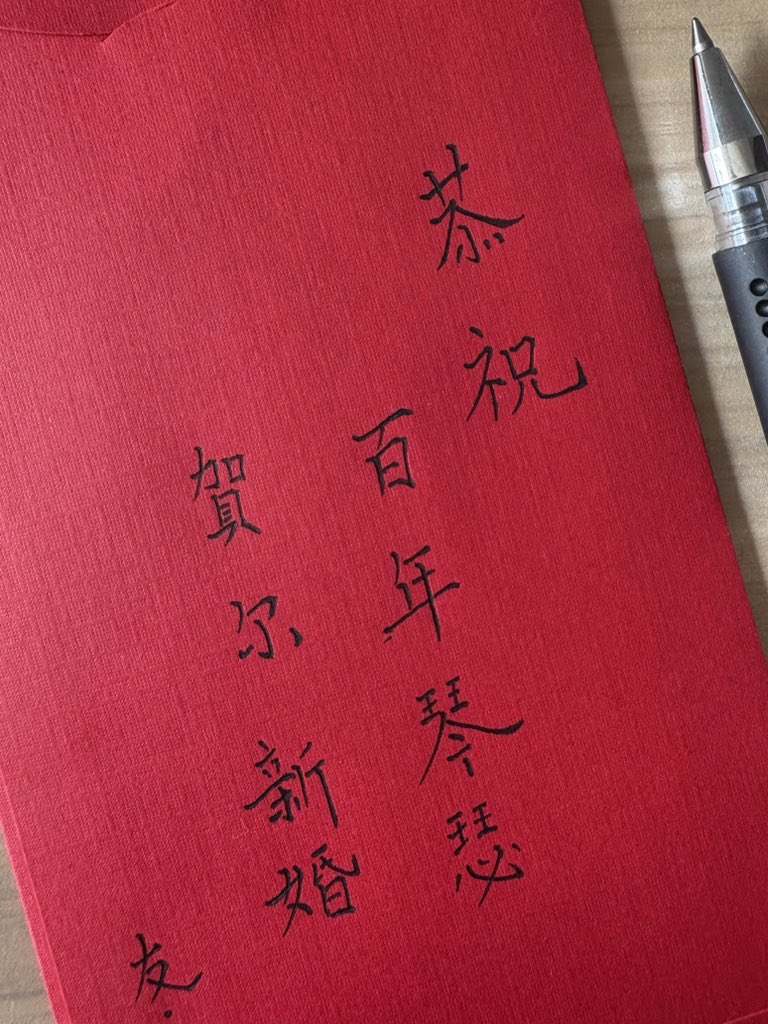 恭祝
百年琴瑟
賀尔新婚
友: